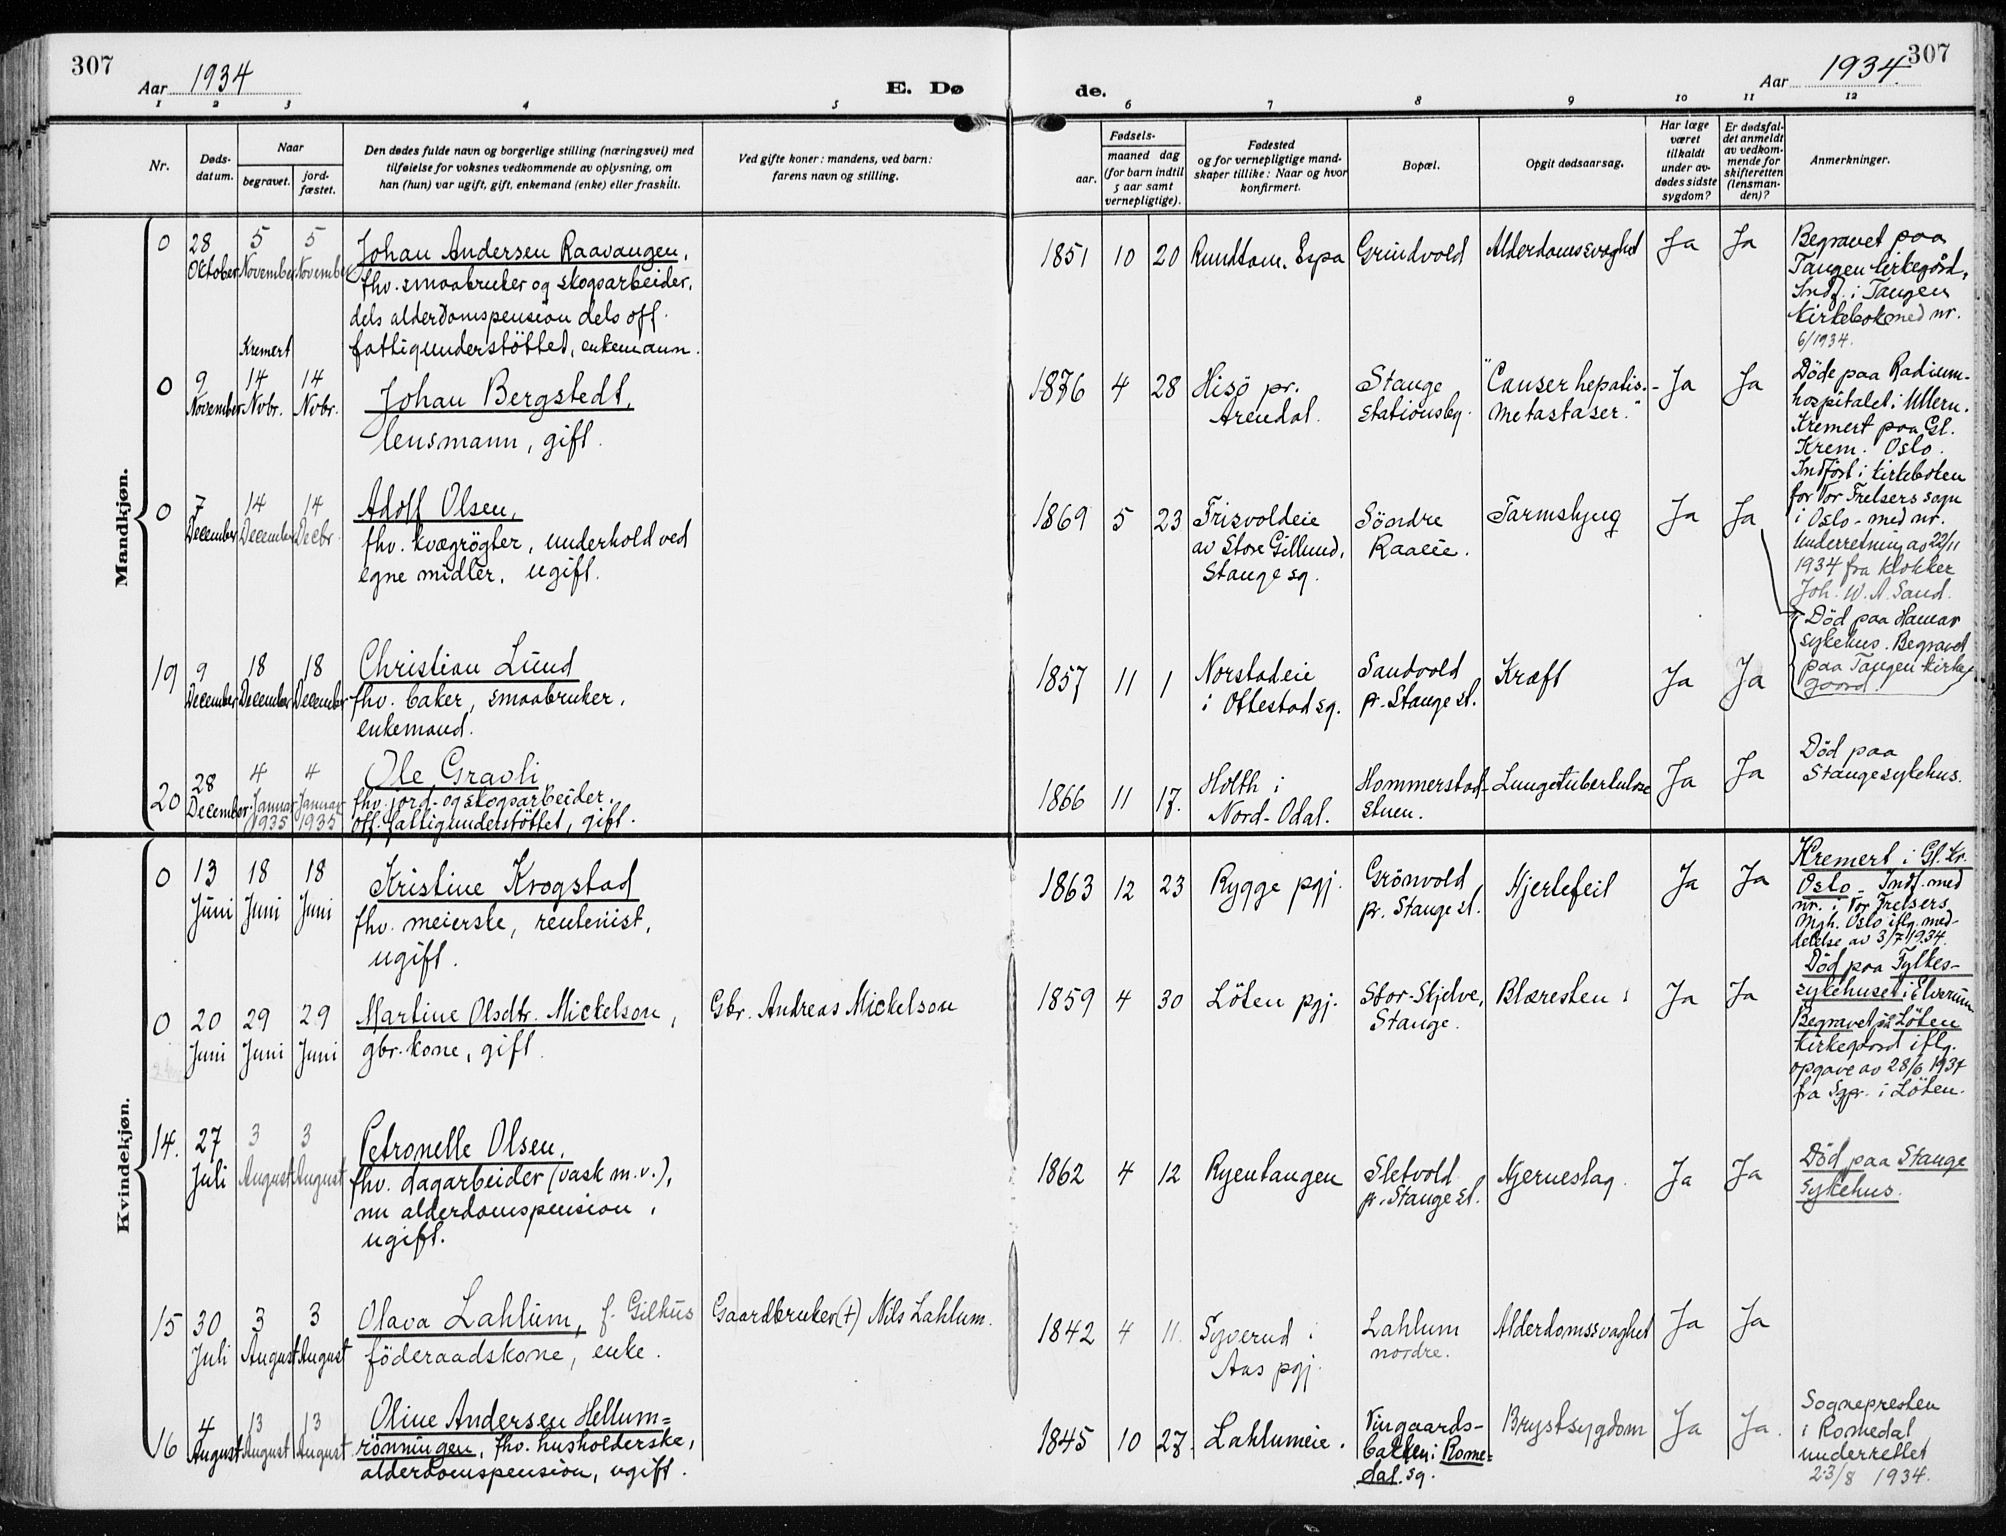 307
Aar 1934
E. Dø
de.
Aar 1934.
307
1 2 3 4 5 6 7 8 9 10 11 12
Nr.
Døds-
datum.
Naar
begravet.
jord-
fæstet.
Den dødes fulde navn og borgerlige stilling (næringsvei) med
tilføielse for voksnes vedkommende av oplysning, om
han (hun) var ugift, gift, enkemand (enke) eller fraskilt.
Ved gifte koner: mandens, ved barn:
farens navn og stilling.
Fødsels-
aar.
maaned dag
(for barn indtil
5 aar samt
vernepligtige).
Fødested
og for vernepligtige mand-
skaper tillike: Naar og hvor
konfirmert.
Bopæl.
Opgit dødsaarsag.
Har læge
været
tilkaldt
under av-
dødes sidste
sygdom?
Er dødsfal-
det anmeldt
av vedkom-
mende for
skifteretten
(lensman-
den)?
Anmerkninger.
Mandkjøn.
0
28
Oktober
5
November
5
November
Johan Andersen Raavangen,
fhv. smaabruker og skogsarbeider,
dels alderdomspension dels off.
fattigunderstöttet, enkemann.
1851 10 20
Rundtom. Espa
Grindvold
Alderdomssvaghet
Ja
Ja
Begravet paa
Tangen kirkegård,
Indf. i Tangen
kirkebok med nr.
6/1934.
0
9
November
Kremert
14
Nvbr.
14
Nvbr.
Johan Bergstedt,
lensmann, gift.
1876 4 28
Hisö pr.
Arendal.
Stange
stationsby.
"Canser hepatis.-
Metastaser."
Ja
Ja
Döde paa Radium-
hospitalet i Ullern.
Kremert paa Gl.
Krem. Oslo.
Indfört i kirkeboken
for Vor Frelsers sogn
i Oslo - med nr.
Underretning av 22/11
1934 fra klokker
Joh. W. A. Sand.
0
7
December
14
December
14
Decbr.
Adolf Olsen,
fhv. kvægrögter, underhold ved
egne midler, ugift.
1869 5 23
Frisvoldeie
av Store Gillund,
Stange sg.
Söndre
Raaeie.
Tarmslyng
Ja
Ja
Död paa Hamar
sykehus. Begravet
paa Tangen kirke
gaard.
19
9
December
18
December
18
December
Christian Lund
fhv. baker, smaabruker,
enkemand.
1857 11 1
Norstadeie
i Ottestad sg.
Sandvold
pr. Stange st.
Kræft
Ja
Ja
20
28
December
4
Januar
1935
4
Januar
1935
Ole Gravli
fhv. jord- og skogsarbeider.
off. fattigunderstöttet, gift.
1866 11 17.
Holth i
Nord-Odal.
Hommerstad-
stuen.
Lungetuberkulose
Ja
Ja
Död paa
Stange sykehus.
Kvindekjøn.
0
13
Juni
18
Juni
18
Juni
Kristine Krogstad
fhv. meierske, rentenist,
ugift.
1863 12 23
Rygge pgj.
Grönvold
pr. Stange st.
Hjertefeil
Ja
Ja
Kremert i Gl. Kr.
Oslo - Indf. med
nr. i Vor Frelsers
Mgh. Oslo iflg. med-
delelse av 3/7 1934.
0
20
Juni
29
Juni
29
Juni
Martine Olsdtr. Mickelson,
gbr. kone, gift.
Gbr. Andreas Mickelson
1859 4 30
Löten pgj.
Stor-Skjelve,
Stange.
Blæresten
Ja
Ja
Död paa Fylkes-
sykehuset i Elverum
Begravet på Löten
kirkegaard iflg.
opgave av 28/6 1934
fra Sgpr. i Löten.
14.
27
Juli
3
August
3
August
Petronelle Olsen,
fhv. dagarbeider (vask m.v.),
nu alderdomspension,
ugift.
1862 4 12
Ryentangen
Sletvold
pr. Stange st.
Hjerneslag.
Ja
Ja
Död paa Stange
sykehus.
15
30
Juli
3
August
3
August
Olava Lahlum, f. Gilhus
föderaadskone, enke.
Gaardbruker (+) Nils Lahlum.
1842 4 11.
Syverud i
Aas pgj.
Lahlum
nordre.
Alderdomssvaghet
Ja
Ja
16
4
August
13
August
13
August
Oline Andersen Hellum=
rönningen, fhv. husholderske,
alderdomspension, ugift.
1845 10 27.
Lahlumeie.
Vingaards-
bakken i Rome=
dal sg.
Brystsygdom
Ja
Ja.
Sognepresten
i Romedal
underrettet
23/8 1934.